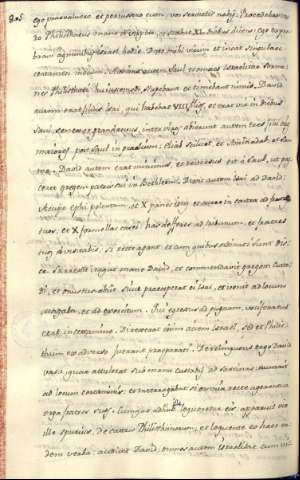 ego praevaluero et percussero eum, vos servietis nobis. Procedebat ve-
ro Philisthaeus mane et vespere, et stabat XL diebus dicens: Ego expro-
bravi agminibus Israel hodie. Date mihi virum et ineat singulare
certamen mecum. Audiens autem Saul et omnes israelitae sermo-
nes Philisthaei huiuscemodi, stupebant et timebant nimis. David
autem erat filius Isai, qui habebat VIII filios, et erat vir in diebus
Saul, senex et grandaevus, inter viros. abierunt autem tres filii eius
maiores post Saul in praelium. Eliab scilicet, et Aminadab, et Sam-
ma. David autem erat minimus, et reversus est a Saul, ut pas-
ceret gregem patris sui in Bethleem. Dixit autem Isai ad David:
Accipe ephi polentae, et X panes istos, et curre in castra ad fratres
tuos, et X formellas casei has deferes ad tribunum, et fratres
tuos visitabis, si recte agant et cum quibus ordinati sunt disce
Surrexit itaque mane David, et commendavit gregem custo-
di, et onustus abiit sicut praeceperat ei Isai, et venit ad locum
magala, et ad exercitum. Qui egressus ad pugnam, vociferatus
erat in certamine. Direxerat enim aciem Israel, sed et Philis-
thiim ex adverso fuerant praeparati. Derelinquens ergo David
vasa, quae attulerat sub manu custodis ad sarcinas, cucurrit
ad locum certaminis, et interrogabat si omnia recte agerentur
erga fratres suos. Cumque adhuc ille loqueretur eis, apparuit vir
ille spurius, de castris Philisthinorum, et loquente eo haec ea-
dem verba, audivit David. omnes autem israelitae cum vi-